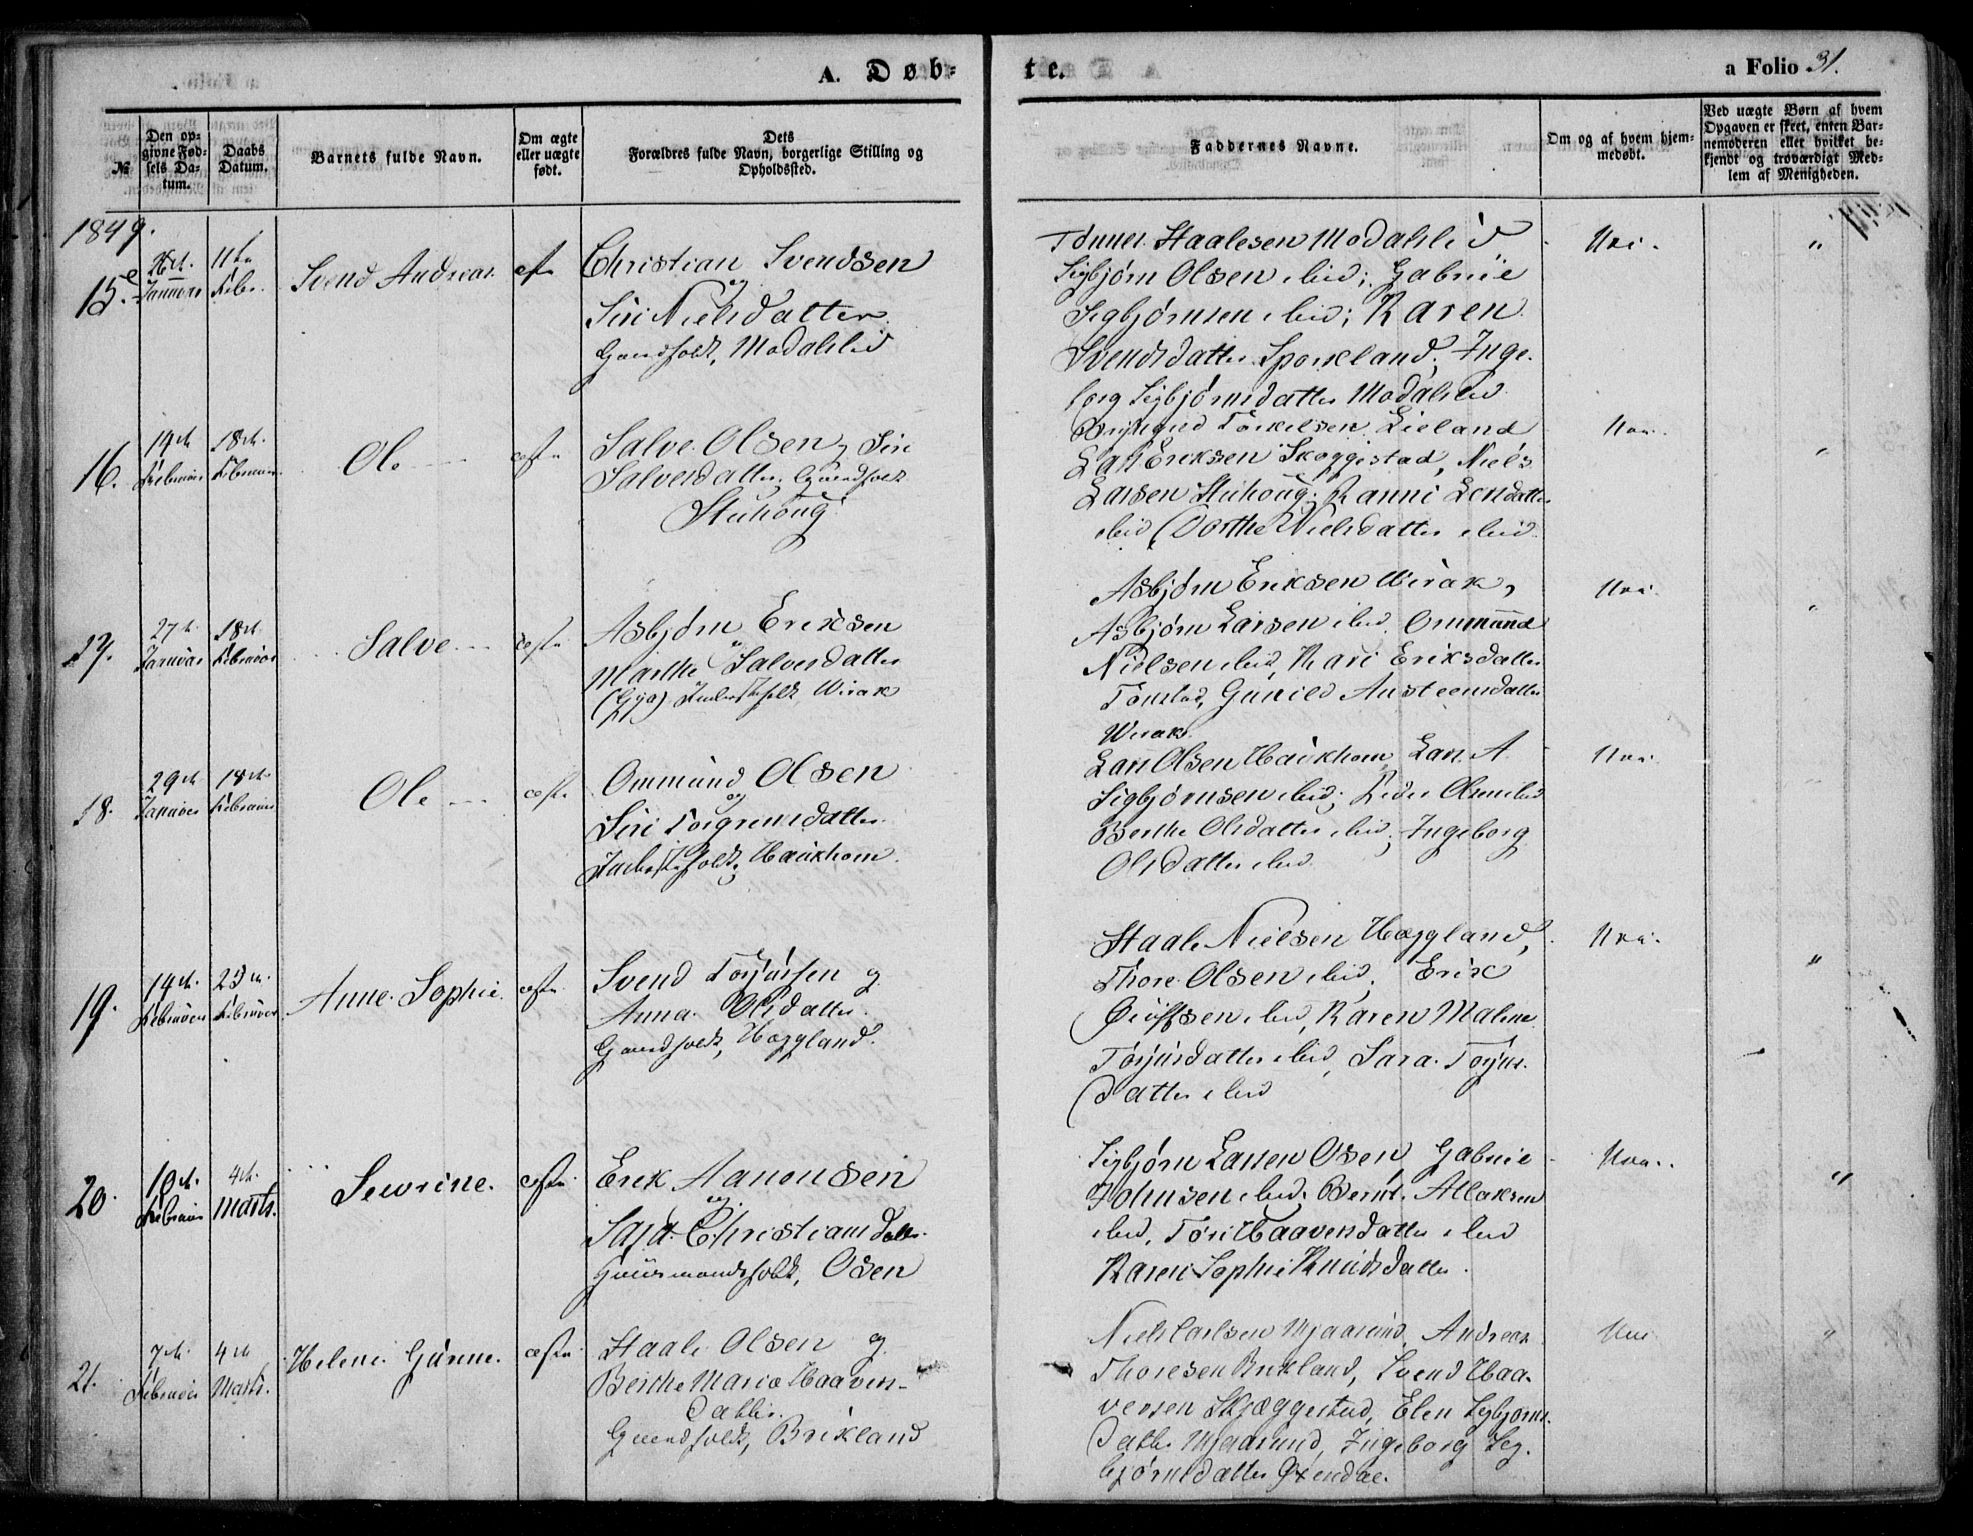 A. Døb-
te.
a Folio 31.
№
Den op-
givne Fød-
sels Da-
tum.
Daabs
Datum.
Barnets fulde Navn.
Om ægte
eller uægte
født.
Dets
Forældres fulde Navn, borgerlige Stilling og
Opholdssted.
Faddernes Navne.
Om og af hvem hjem-
medøbt.
Ved uægte Børn af hvem
Opgaven er skeet, enten Bar-
nemoderen eller hvilket be-
kjendt og troværdigt Med-
lem af Menigheden.
1849.
15.
26de
Januar
11te
Febr.
Svend Andreas
Christian Svendsen
og
Siri Nielsdatter
Gaardfolk, Modahlid
Tønnes Staalesen Modahlid
Sigbjørn Olsen ibid; Gabriel
Sigbjørnsen ibid; Karen
Svendsdatter Sporkland; Inge-
borg Sigbjørnsdatter Modahlid
"
16.
14de
Februar
18de
Februar
Ole
ægte
Salve Olsen, Siri
Salvesdatter; Gaardfolk
Stuhoug
Torkelsen Lieland
Lars Eriksen Skoggestad, Niels
Larsen Stuhoug; Ranni Larsdatter
ibid Dorthe Nielsdatter ibid
"
17.
27de
Januar
18de
Februar
Salve
ægte
Asbjørn Eriksen
Marthe Salvesdatter
(Gya) Inderstfolk, Wirak
Asbjørn Eriksen Wirak,
Asbjørn Larsen ibid, Ommund
Nielsen ibid, Kari Eriksdatter
Tonstad, Gunild Austeensdatter
Wirak
"
18.
29de
Januar
18de
Februar
Ole
ægte
Ommund Olsen
og
Siri Torgrimsdatter
Inderstfolk, Haukhom
Lars Olsen Haukhom, Lars A
Sigbjørnsen ibid; Peder Olsen ibid
Berthe Olsdatter ibid; Ingeborg
Olsdatter ibid
19.
14de
Februar
25de
Februar
Anne Sophie
ægte
Svend Torjusen og
Anna Olsdatter
Gaardfolk, Hæggland
Staale Nielsen Hæggland,
Thore Olsen ibid, Erik
ibid, Karen Malene
Torjusdatter ibid, Sara Torjus-
datter ibid
"
20.
10de
Februar
4de
Marts.
Sevrine.
ægte
Erik Aanensen
og
Christiansdatter
Huusmandsfolk, Osen
Sigbjørn Larsen Osen, Gabriel
Johnsen ibid; Bernt Atlaksen
ibid, Tori Haavensdatter ibid
Karen Sophie Knudsdatter
"
21.
7de
Februar
4de
Marts.
Helene Gunne.
ægte
Staale Olsen og
Berthe Maria Haavens-
datter.
Gaardfolk, Brekland
Niels Carlsen Mjaasund, Andreas
Thoresen Brekland, Svend Haa-
vensen Skjæggestad, Elen Sigbjørns-
datter Mjaasund, Ingeborg Sig-
bjørnsdatter Øxendal
"